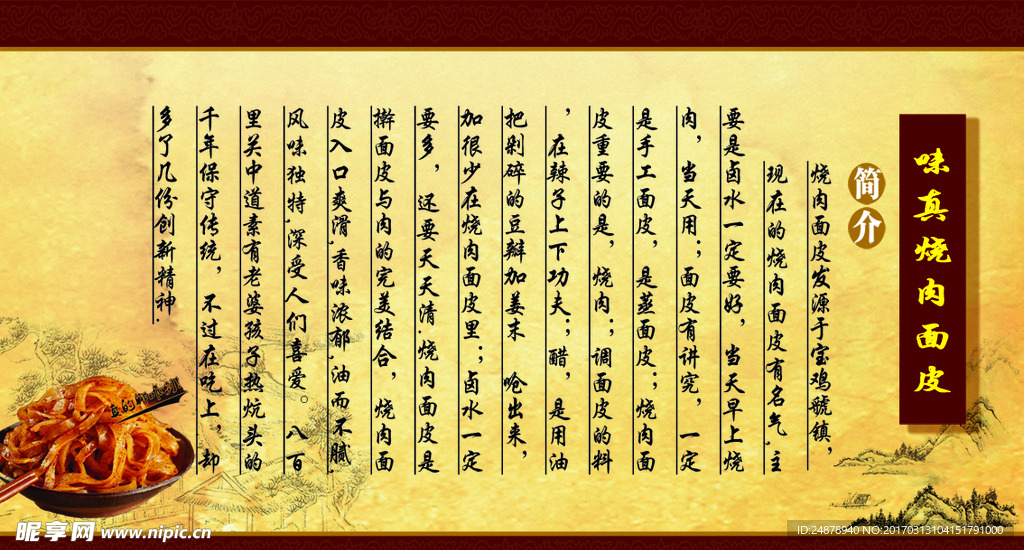 味真烧肉面皮
简介
烧肉面皮发源于宝鸡虢镇，
现在的烧肉面皮有名气.主
要是卤水一定要好，当天早上烧
肉，当天用；面皮有讲究，一定
是手工面皮，是蒸面皮；烧肉面
皮重要的是，烧肉；调面皮的料
，在辣子上下功夫；醋，是用油
把剁碎的豆瓣加姜末 呛出来，
加很少在烧肉面皮里；卤水一定
要多，还要天天清.烧肉面皮是
擀面皮与肉的完美结合，烧肉面
皮入口爽滑,香味浓郁,油而不腻.
风味独特,深受人们喜爱。八百
里关中道素有老婆孩子热炕头的
千年保守传统，不过在吃上，却
多了几份创新精神.
昵享网 www.nipic.cn
ID:24878940 NO:20170313104151791000